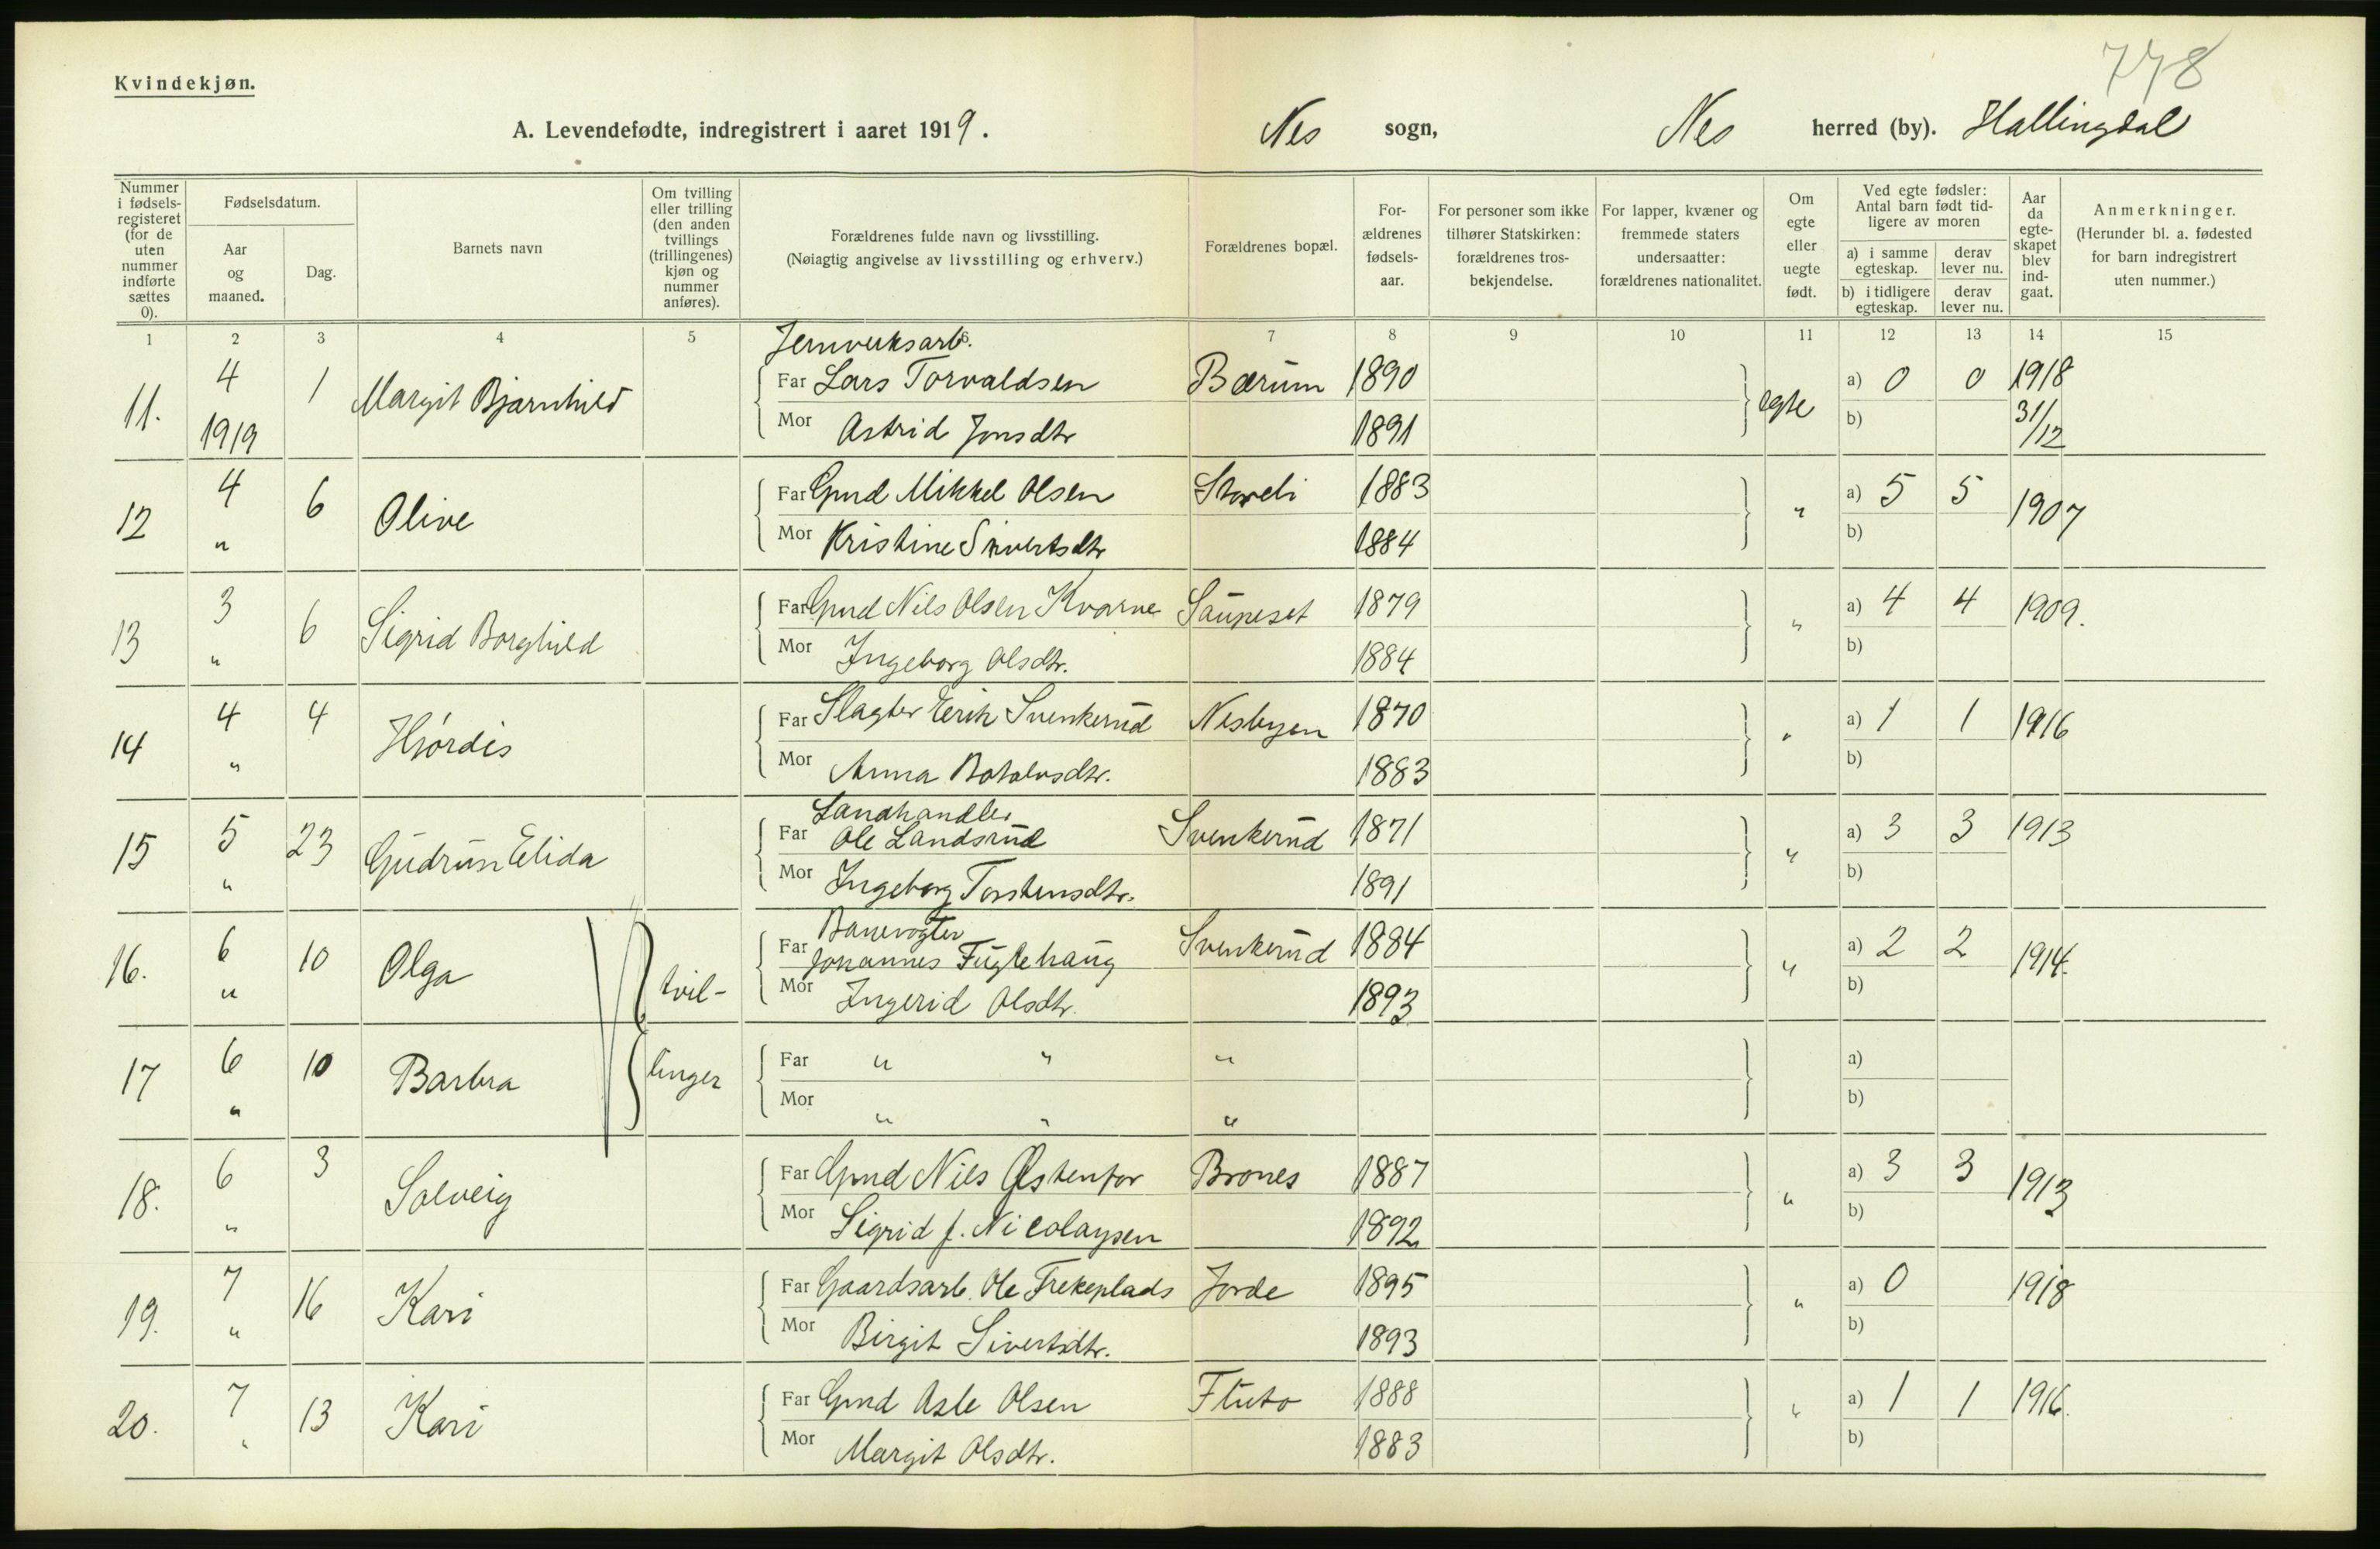 778
Kvindekjøn.
A. Levendefødte, indregistrert i aaret 1919. Nes sogn, Nes herred (by). Hallingdal
Nummer i fødsels-registeret (for de uten nummer indførte sættes 0).
Fødselsdatum.
Aar og maaned.
Dag.
Barnets navn
Om tvilling eller trilling (den anden tvillings (trillingenes) kjøn og nummer anføres).
Forældrenes fulde navn og livsstilling.
(Nøiagtig angivelse av livsstilling og erhverv.)
Forældrenes bopæl.
For-ældrenes fødsels-aar.
For personer som ikke tilhører Statskirken: forældrenes tros-bekjendelse.
For lapper, kvæner og fremmede staters undersaatter: forældrenes nationalitet.
Om egte eller uegte født.
Ved egte fødsler: Antal barn født tid-ligere av moren
a) i samme egteskap. derav lever nu.
b) i tidligere egteskap. derav lever nu.
Aar da egte-skapet blev ind-gaat.
Anmerkninger.
(Herunder bl. a. fødested for barn indregistrert uten nummer.)
1 2 3 4 5 6 7 8 9 10 11 12 13 14 15
Jernverksarb.
11. 4 1 Margit Bjarnhild Far Lars Torvaldsen Bærum 1890 egte a) 0 0 1918
1919 Mor Astrid Jonsdtr 1891 b) 31/12
12 4 6 Olive Far Gmd Mikkel Olsen Storeli 1883 " a) 5 5 1907
" Mor Kristine Sivertsdtr 1884 b)
13 3 6 Sigrid Borghild Far Gmd Nils Olsen Kvarne Sauneset 1879 " a) 4 4 1909.
" Mor Ingeborg Olsdtr. 1884 b)
14 4 4 Hjørdis Far Slagter Eerik Svenkerud Nesbyen 1870 " a) 1 1 1916
" Mor Anna Botolvsdtr. 1883 b)
Landhandler
15 5 23 Gudrun Elida Far Ole Landsrud Svenkerud 1871 " a) 3 3 1913
" Mor Ingeborg Torstensdtr. 1891 b)
Banevogter
16. 6 10 Olga tvil- Far Johannes Fuglehaug Svenkerud 1884 " a) 2 2 1914.
" Mor Ingerid Olsdtr. 1893 b)
17 6 10 Barbra linger Far " " " a)
" Mor " " " b)
18. 6 3 Solveig Far Gmd Nils Østenfor Brones 1887 " a) 3 3 1913
" Mor Sigrid f. Nicolaysen 1892 b)
19. 7 16 Kari Far Gaardsarb. Ole Frekeplads Jorde 1895 " a) 0 1918
" Mor Birgit Sivertsdtr. 1893 b)
20. 7 13 Kari Far Gmd Asle Olsen Fluto 1888 " a) 1 1 1916.
" Mor Margit Olsdtr. 1883 b)